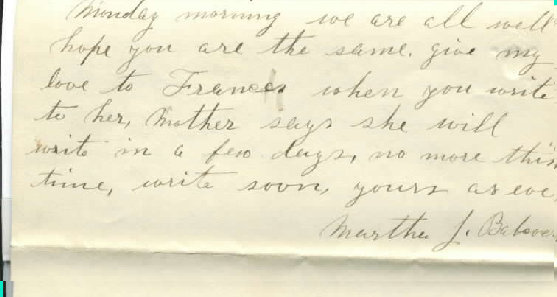 Monday morning we are all well
hope you are the same. give my
love to Frances when you write
to her, Mother says she will
write in a few days, no more this
time, write soon, yours as eve
Martha J.